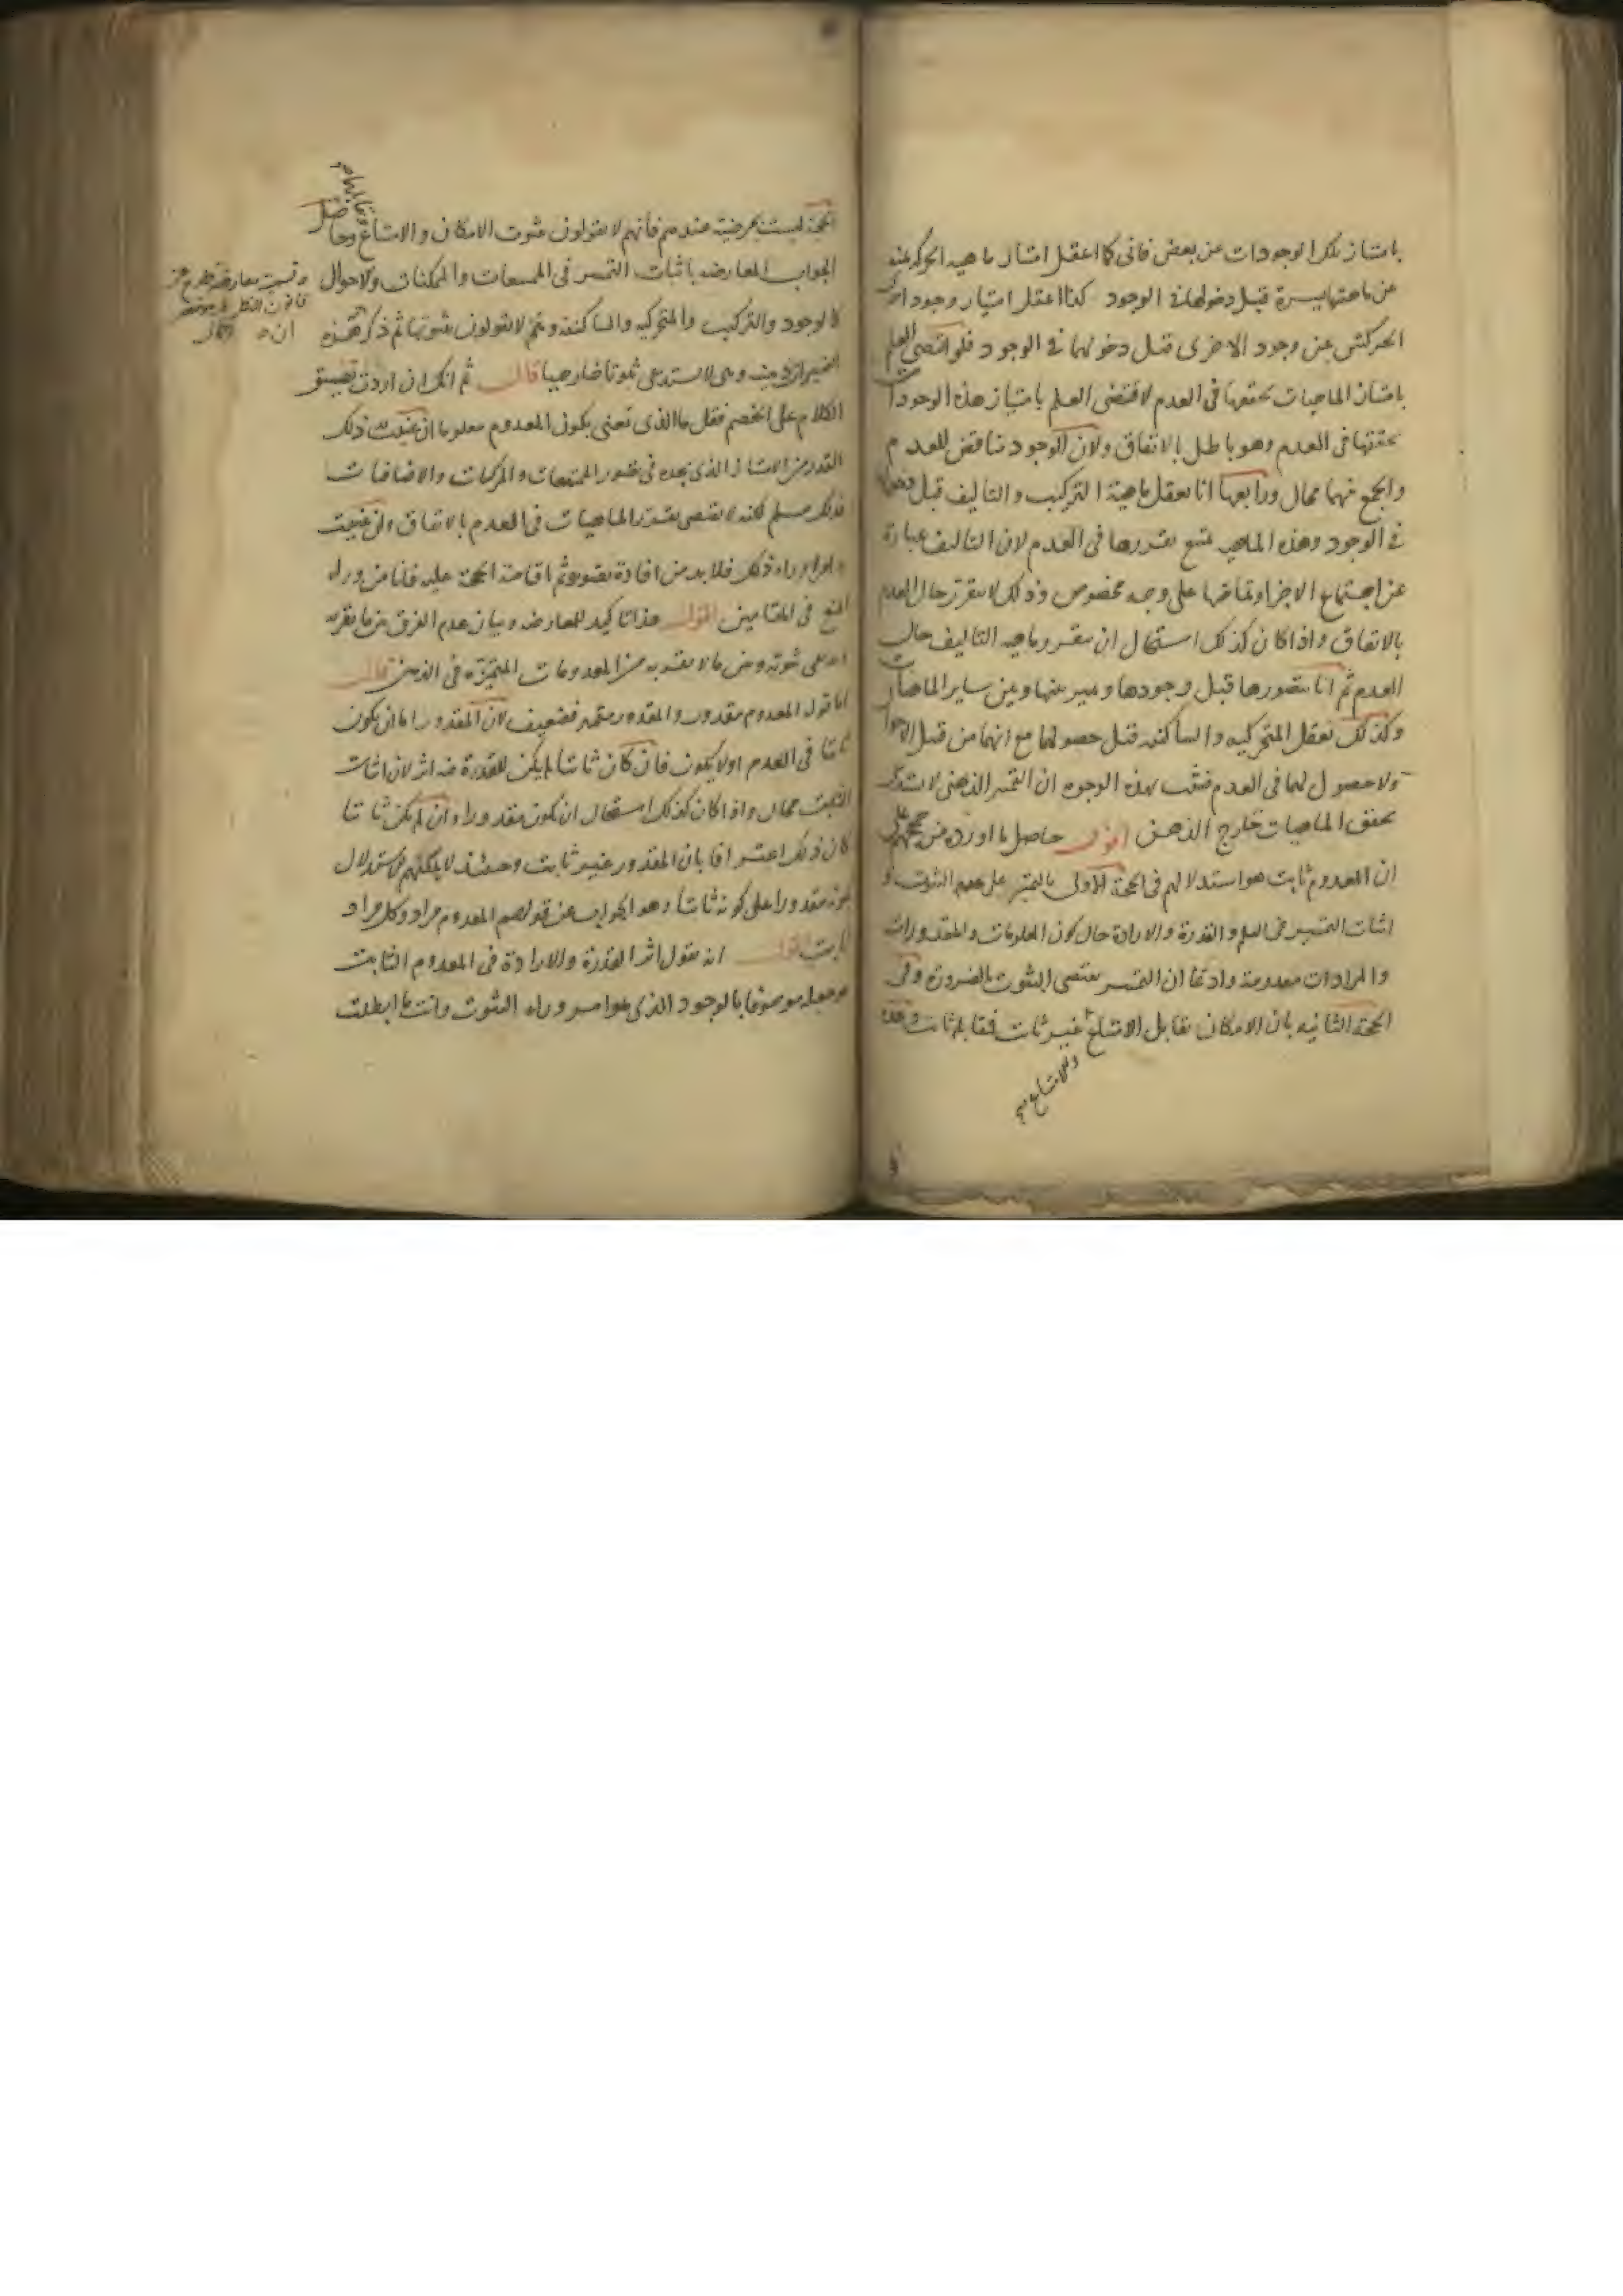 بامتياز تلك الوجودات عن بعض فانى كما اعقل امتياز ماهية الحركة يمنة
عن ماهيتها يسرة قبل دخولها فى الوجود كذا اعقل امتياز وجود احدى
الحركتين عن وجود الاخرى قبل دخولهما فى الوجود فلو اقتضى العلم
بامتياز الماهيات تحققها فى العدم لاقتضى العلم بامتياز هذه الوجودات
تحققها فى العدم وهو باطل بالاتفاق ولان الوجود مناقض للعدم
والجمع بينهما محال ورابعها انا نعقل ماهية التركيب والتأليف قبل دخولها
فى الوجود وهذه الماهية يمتنع تقررها فى العدم لان التأليف عبارة
عن اجتماع الاجزاء وتماسها على وجه مخصوص وذلك لا يتقرر حال العدم
بالاتفاق واذا كان كذلك استحال ان يتقرر ماهية التأليف حال
العدم ثم انا نتصورها قبل وجودها ونميز بينها وبين ساير الماهيات
وكذلك نعقل المتحركية والساكنية قبل حصولهما مع انهما من قبيل الاحوال
ولا حصول لهما فى العدم فثبت بهذه الوجوه ان التميز الذهنى لا يستدعى
تحقق الماهيات خارج الذهن اقول حاصل ما اورده من حججهم على
ان المعدوم ثابت هو استدلالهم فى الحجة الاولى بالتميز على الثبوت و
اثبات التميز فى العلم والقدرة والارادة حال كون المعلومات والمقدورات
والمرادات معدومة وادعا ان التميز يقتضى الثبوت بالضرورة وفى
الحجة الثانيه بان الامكان يقابل الامتناع غير ثابت فمقابله ثابت وهذه
والامتناع
الحجة ليست بمرضية عندهم فانهم لا يقولون بثبوت الامكان والامتناع وحاصل
الجواب المعارضه باثبات التميز فى الممتنعات والممكنات والاحوال
كالوجود والتركيب والمتحركيه والساكنيه وهم لا يقولون بثبوتها ثم ذكر ان هذه
التميز ذهنية وهى لا تستدعى ثبوتا خارجيا قال ثم انك ان اردت تضييق
الكلام على الخصم فقل ما الذى تعنى بكون المعدوم معلوما ان عنيت به ذلك
القدر من الامتياز الذى نجده فى تصور الممتنعات والمركبات والاضافات
فذلك مسلم لكنه لا يقتضى تقرر الماهيات فى العدم بالاتفاق وان عنيت
به امرا وراء ذلك فلا بد من افادة تصوره ثم اقامة الحجة عليه فانا من وراء
المنع فى المقامين اقول هذا تاكيد للمعارضه وبيان عدم الفرق بين ما يقر به
ويدعى ثبوته وبين ما لا يقر به من المعدومات المتميزة فى الذهن قال
اما قوله المعدوم مقدور والمقدور متميز فضعيف لان المقدور اما ان يكون
ثابتا فى العدم او لا يكون فان كان ثابتا لم يكن للقدرة فيه اثر لان اثبات
الثابت محال واذا كان كذلك استحال ان يكون مقدورا وان لم يكن ثابتا
كان ذلك اعترافا بان المقدور غير ثابت وحينئذ لا يمكنهم الاستدلال
بكونه مقدورا على كونه ثابتا وهو الجواب عن قولهم المعدوم مراد وكل مراد
ثابت اقول انه يقول اثر القدرة والارادة فى المعدوم الثابت
هو جعله موصوفا بالوجود الذى هو امر وراء الثبوت وانت ما ابطلت